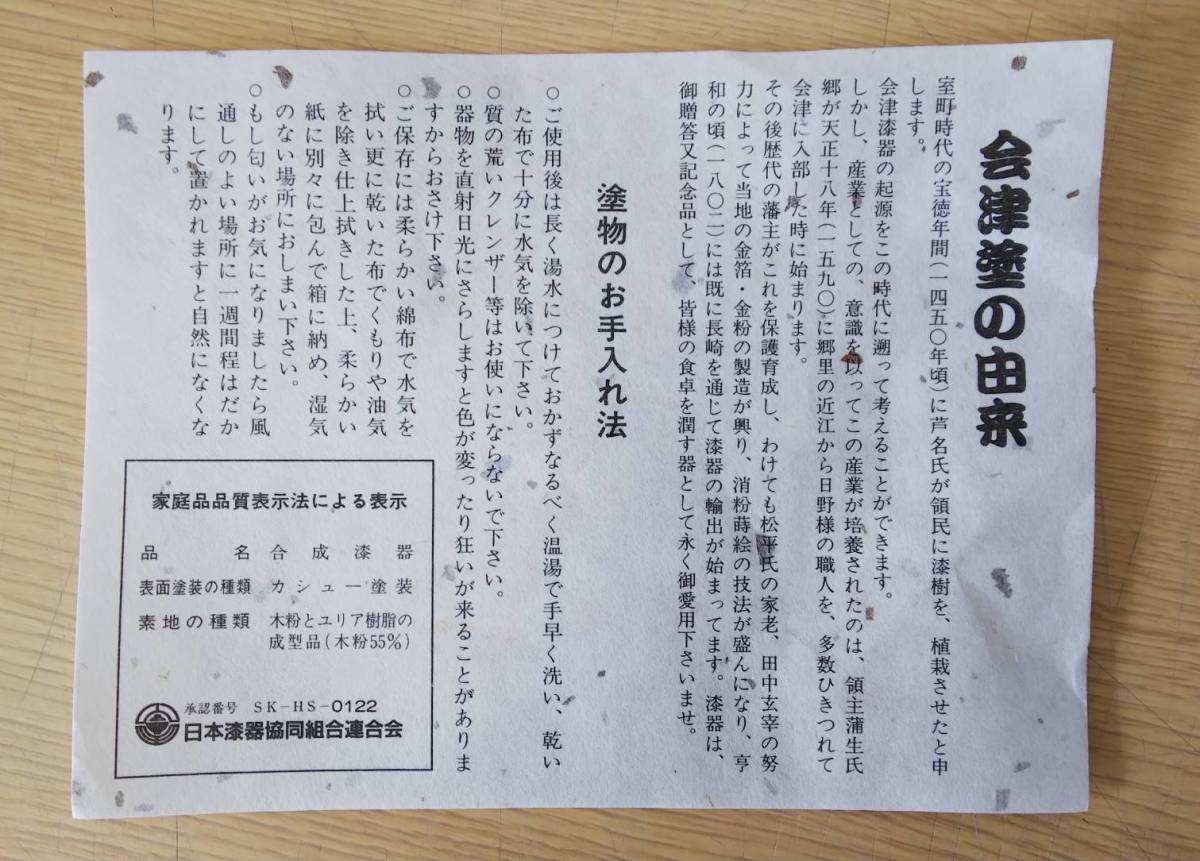 会津塗の由来
室町時代の宝徳年間(一四五〇年頃)に芦名氏が領民に漆樹を、植栽させたと申
します。
会津漆器の起源をこの時代に遡って考えることができます。
しかし、産業としての、意識を以ってこの産業が培養されたのは、領主蒲生氏
郷が天正十八年(一五九〇)に郷里の近江から日野様の職人を、多数ひきつれて
会津に入部した時に始まります。
その後歴代の藩主がこれを保護育成し、わけても松平氏の家老、田中玄宰の努
力によって当地の金箔・金粉の製造が興り、消粉蒔絵の技法が盛んになり、亨
和の頃(一八〇二)には既に長崎を通じて漆器の輸出が始まってます。漆器は、
御贈答又記念品として、皆様の食卓を潤す器として永く御愛用下さいませ。
塗物のお手入れ法
○ご使用後は長く湯水につけておかずなるべく温湯で手早く洗い、乾い
た布で十分に水気を除いて下さい。
○質の荒いクレンザー等はお使いにならないで下さい。
○器物を直射日光にさらしますと色が変ったり狂いが来ることがありま
すからおさけ下さい。
○ご保存には柔らかい綿布で水気を
拭い更に乾いた布でくもりや油気
を除き仕上拭きした上、柔らかい
紙に別々に包んで箱に納め、湿気
のない場所におしまい下さい。
○もし匂いがお気になりましたら風
通しのよい場所に一週間程はだか
にして置かれますと自然になくな
ります。
家庭品品質表示法による表示
品名 合成漆器
表面塗装の種類 カシュー塗装
素地の種類 木粉とユリア樹脂の
成型品(木粉55%)
承認番号 SK-HS-0122
日本漆器協同組合連合会